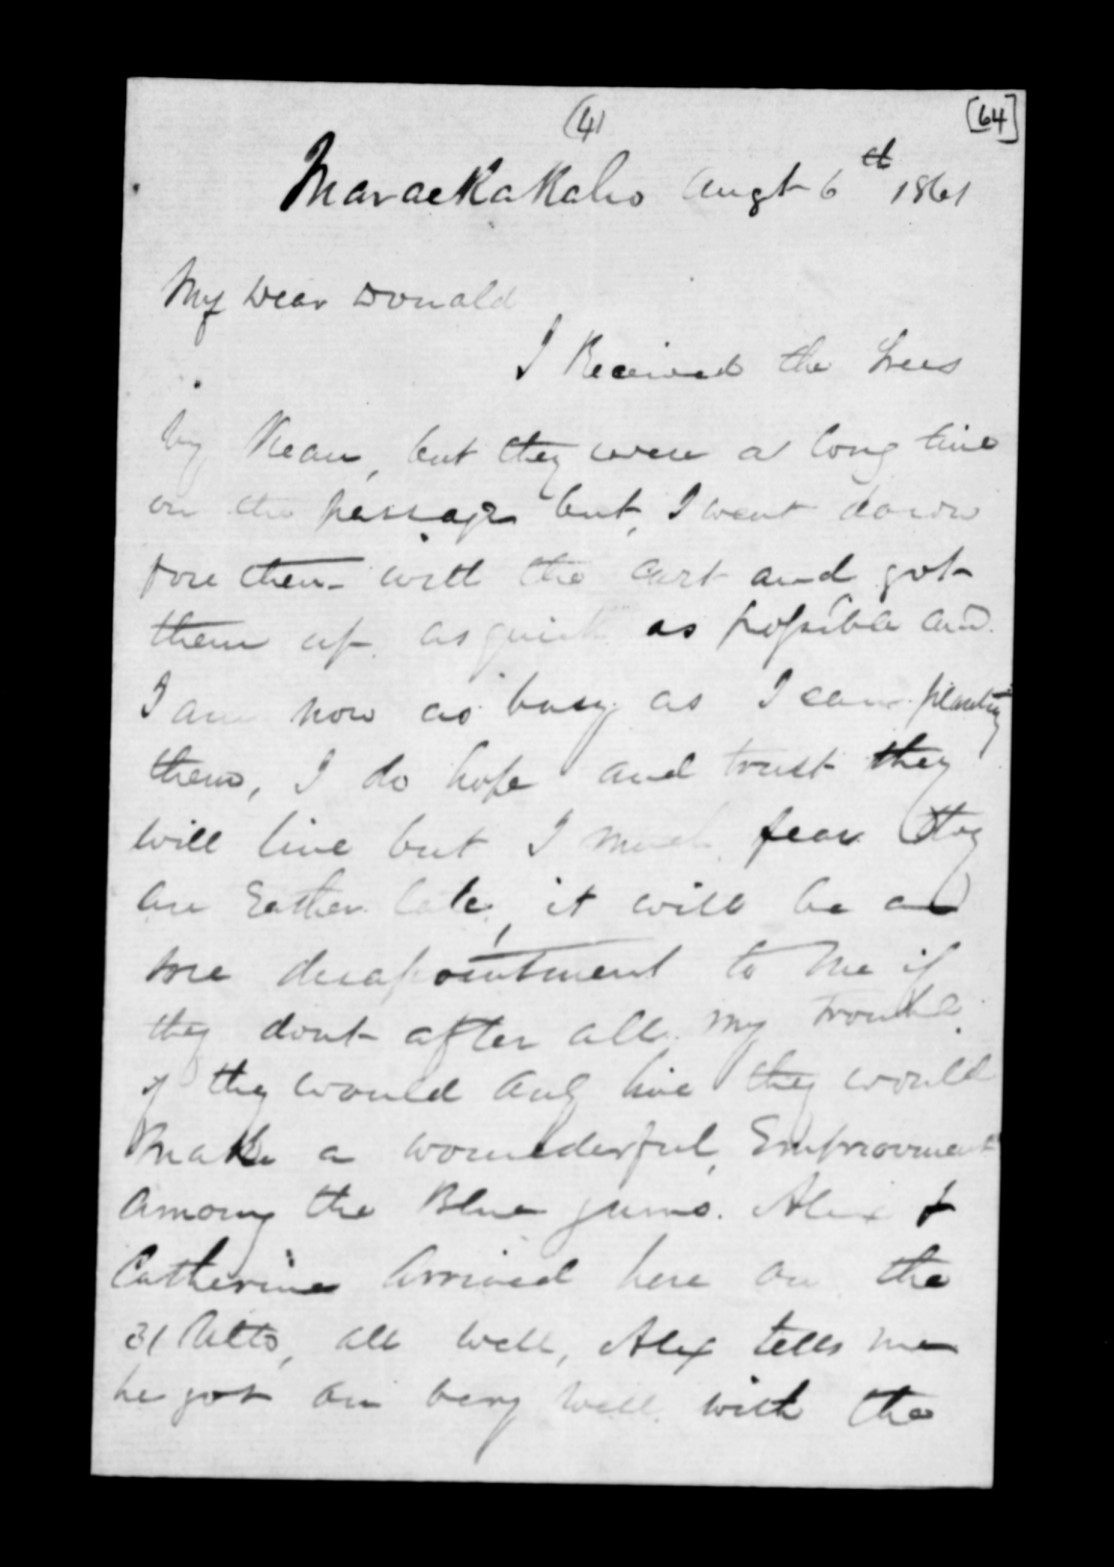 (4)
[64]
Maraekakaho Augt 6th 1861
My Dear Donald
I Received the trees
by Kean, but they were a long time
on the passage but, I went down
fore them with the cart and got
them up as quick as possible and
I am now as busy as I can planting
them, I do hope and trust they
will live but I much fear they
are Eather late, it will be a
sore disapointment to me if
they dont after all my trouble
if they would only live they would
make a wounderful, Emprovment
among the Blue gums. Alex &
Catherine Arrived here on the
31 Ulto, all well, Alex tells me
he got on very well with the